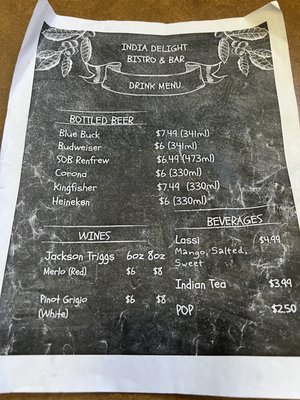 INDIA DELIGHT
BISTRO & BAR
DRINK MENU
BOTTLED BEER
Blue Buck $7.49 (341ml)
Budweiser $6 (341ml)
SOB Renfrew $6.49 (473ml)
Corona $6 (330ml)
Kingfisher $7.49 (330ml)
Heineken $6 (330ml)
WINES
Jackson Triggs 6oz 8oz
Merlo (Red) $6 $8
Pinot Grigio $6 $8
(White)
BEVERAGES
Lassi $4.99
Mango, Salted,
Sweet
Indian Tea $3.99
POP $2.50